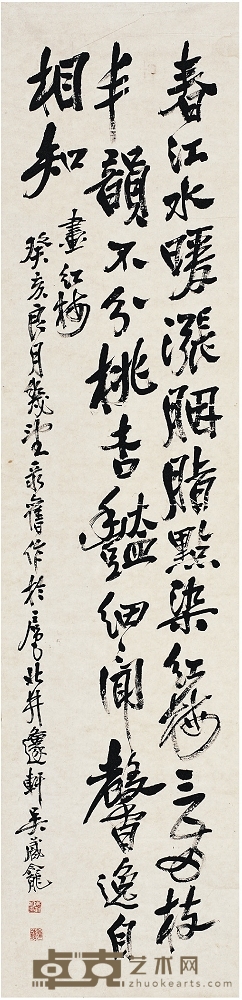 春江水暖漲胭脂點染紅梅三五枝
半韻不分桃杏豔細聞馨逸自
相知
畫紅梅
癸亥良月幾望录舊作於滬北井邃軒吳臧龕
卓克艺术网
www.zhuokearts.com